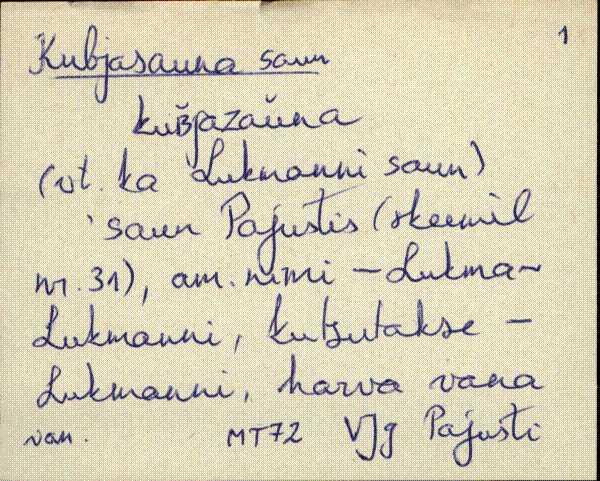 1
Kubjasauna saun
kuʙ̌jazaǔna
(vt. ka Lukmanni saun)
'saun Pajustis (skeemil
nr. 31), am. nimi – Lukma-
Lukmanni, kutsutakse –
Lukmanni, harva vana
van. MT72 VJg Pajusti